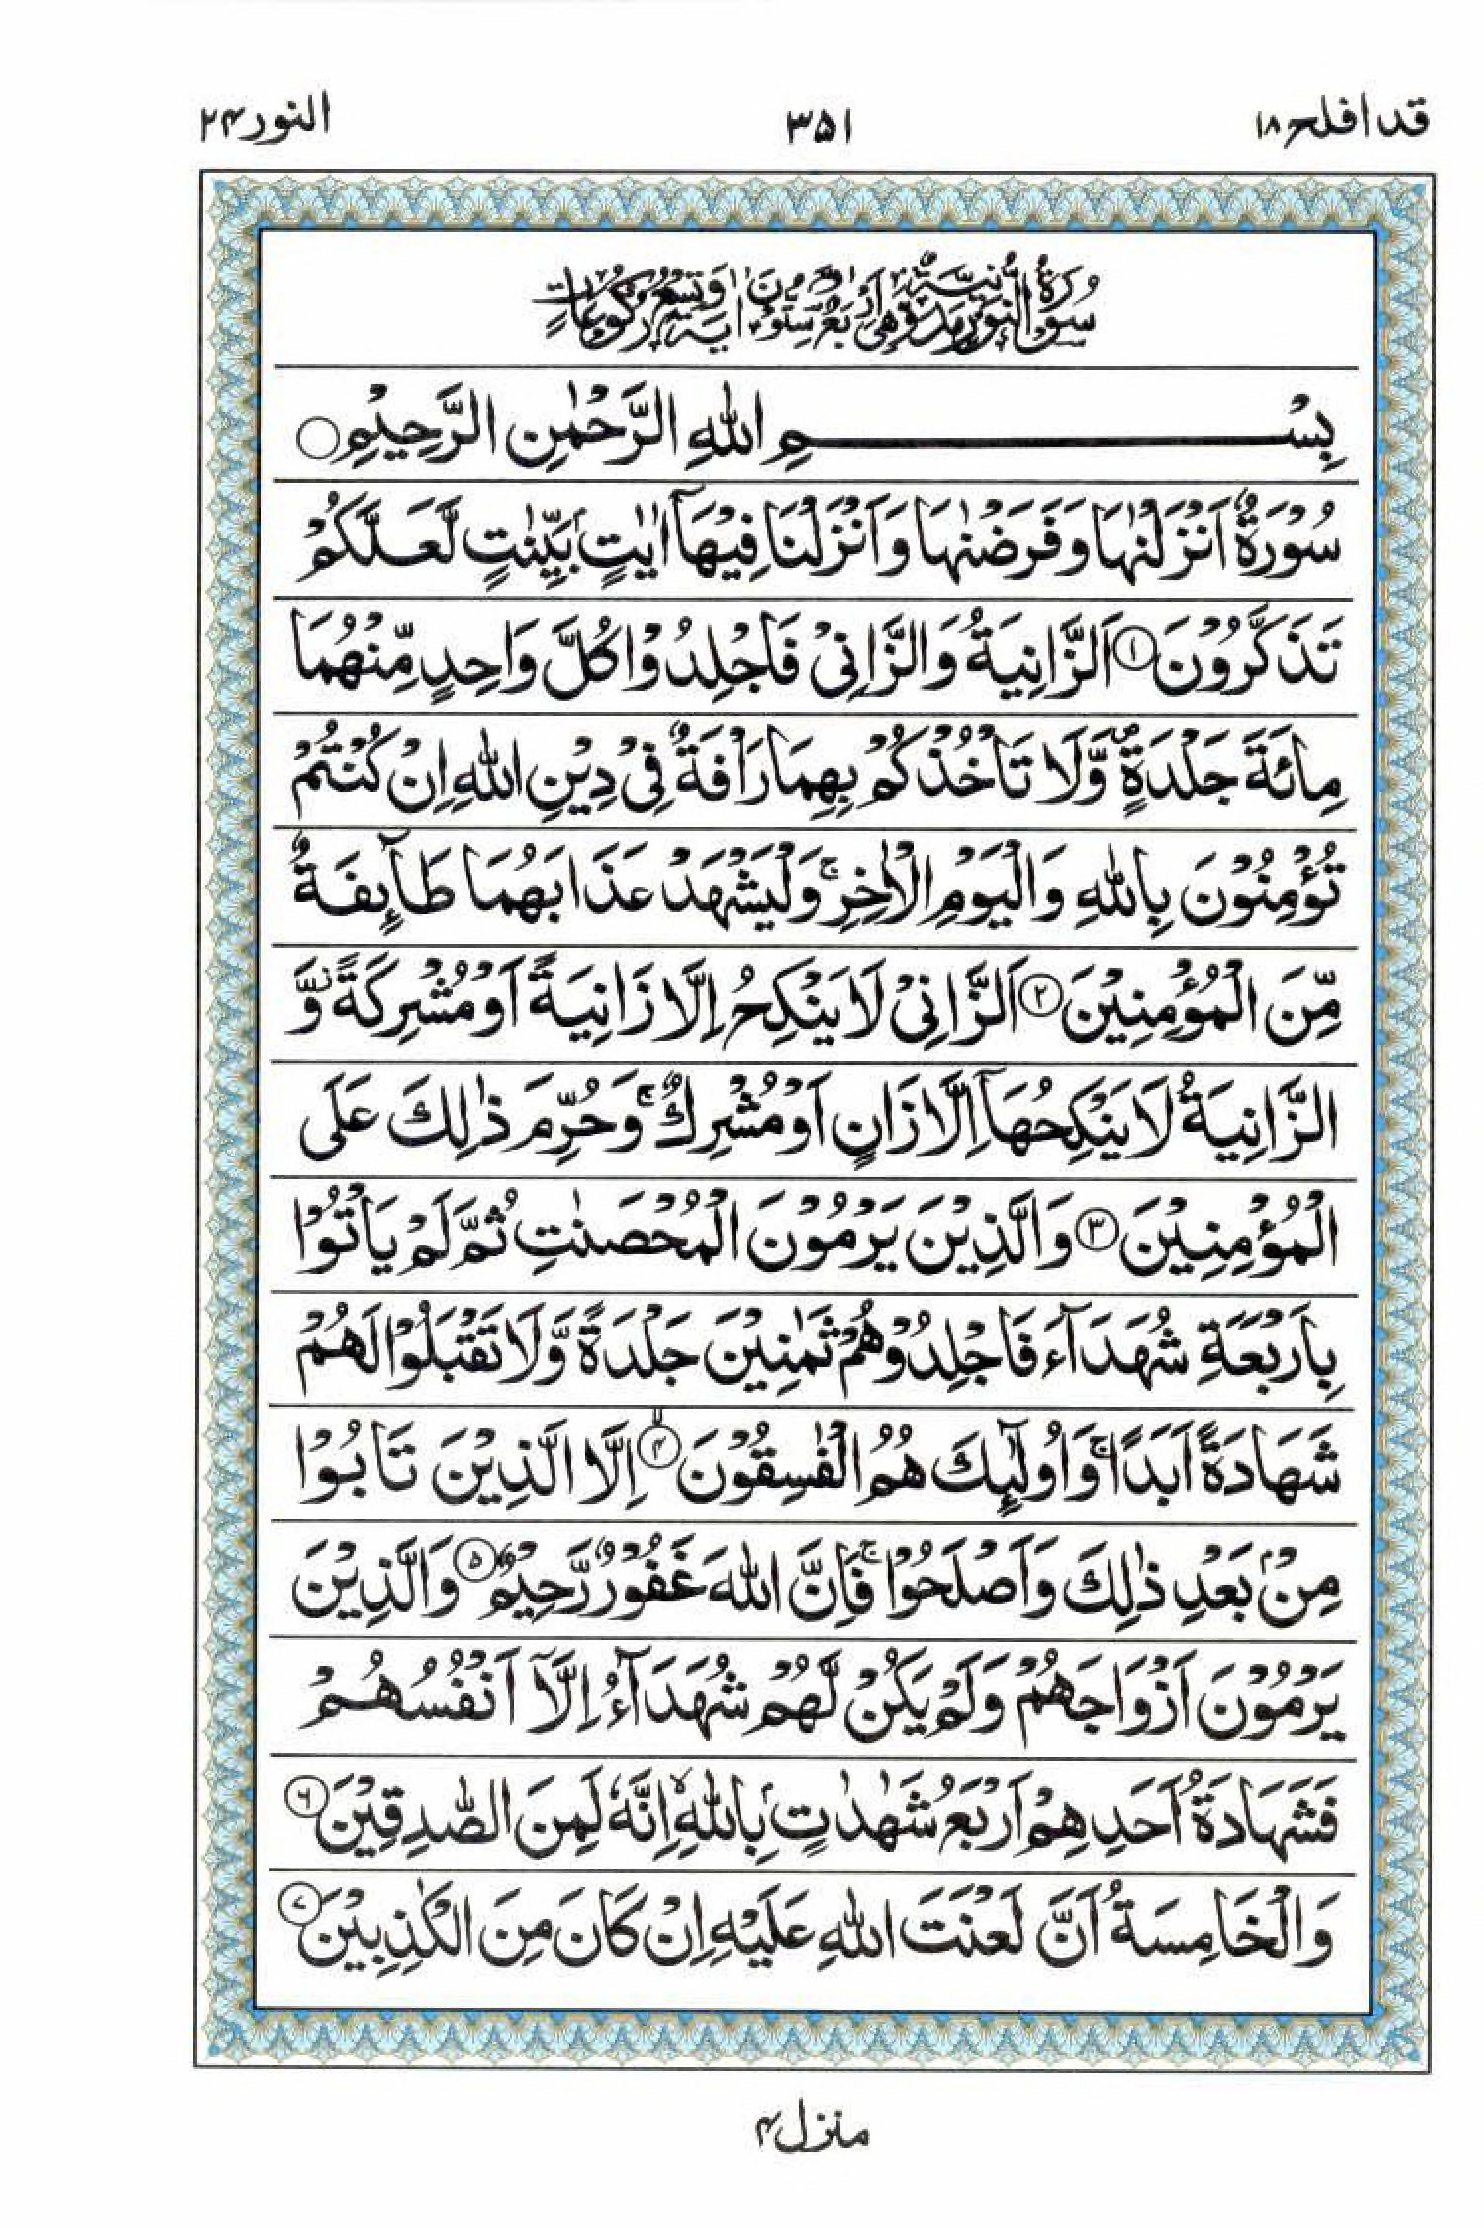 قد افلح ۱۸
۳۵۱
النور ۲۴
سُوْرَةُ النُّوْرِ مَدَنِيَّةٌ وَّهِيَ اَرْبَعٌ وَّسِتُّوْنَ اٰيَةً وَّتِسْعُ رُكُوْعَاتٍ
بِسْمِ اللهِ الرَّحْمٰنِ الرَّحِيْمِ ○
سُوْرَةٌ اَنْزَلْنٰهَا وَفَرَضْنٰهَا وَاَنْزَلْنَا فِيْهَاۤ اٰيٰتٍۭ بَيِّنٰتٍ لَّعَلَّكُمْ
تَذَكَّرُوْنَ ﴿۱﴾ اَلزَّانِيَةُ وَالزَّانِيْ فَاجْلِدُوْا كُلَّ وَاحِدٍ مِّنْهُمَا
مِائَةَ جَلْدَةٍ ۪ وَّلَا تَاْخُذْكُمْ بِهِمَا رَاْفَةٌ فِيْ دِيْنِ اللهِ اِنْ كُنْتُمْ
تُؤْمِنُوْنَ بِاللهِ وَالْيَوْمِ الْاٰخِرِ ۚ وَلْيَشْهَدْ عَذَابَهُمَا طَآئِفَةٌ
مِّنَ الْمُؤْمِنِيْنَ ﴿۲﴾ اَلزَّانِيْ لَا يَنْكِحُ اِلَّا زَانِيَةً اَوْ مُشْرِكَةً ۫ وَّ
الزَّانِيَةُ لَا يَنْكِحُهَاۤ اِلَّا زَانٍ اَوْ مُشْرِكٌ ۚ وَحُرِّمَ ذٰلِكَ عَلَى
الْمُؤْمِنِيْنَ ﴿۳﴾ وَالَّذِيْنَ يَرْمُوْنَ الْمُحْصَنٰتِ ثُمَّ لَمْ يَاْتُوْا
بِاَرْبَعَةِ شُهَدَآءَ فَاجْلِدُوْهُمْ ثَمٰنِيْنَ جَلْدَةً وَّلَا تَقْبَلُوْا لَهُمْ
شَهَادَةً اَبَدًا ۚ وَاُولٰٓئِكَ هُمُ الْفٰسِقُوْنَ ﴿۴﴾ اِلَّا الَّذِيْنَ تَابُوْا
مِنْۢ بَعْدِ ذٰلِكَ وَاَصْلَحُوْا ۚ فَاِنَّ اللهَ غَفُوْرٌ رَّحِيْمٌ ﴿۵﴾ وَالَّذِيْنَ
يَرْمُوْنَ اَزْوَاجَهُمْ وَلَمْ يَكُنْ لَّهُمْ شُهَدَآءُ اِلَّاۤ اَنْفُسُهُمْ
فَشَهَادَةُ اَحَدِهِمْ اَرْبَعُ شَهٰدٰتٍۭ بِاللهِ ۙ اِنَّهٗ لَمِنَ الصّٰدِقِيْنَ ﴿۶﴾
وَالْخَامِسَةُ اَنَّ لَعْنَتَ اللهِ عَلَيْهِ اِنْ كَانَ مِنَ الْكٰذِبِيْنَ ﴿۷﴾
منزل ۴